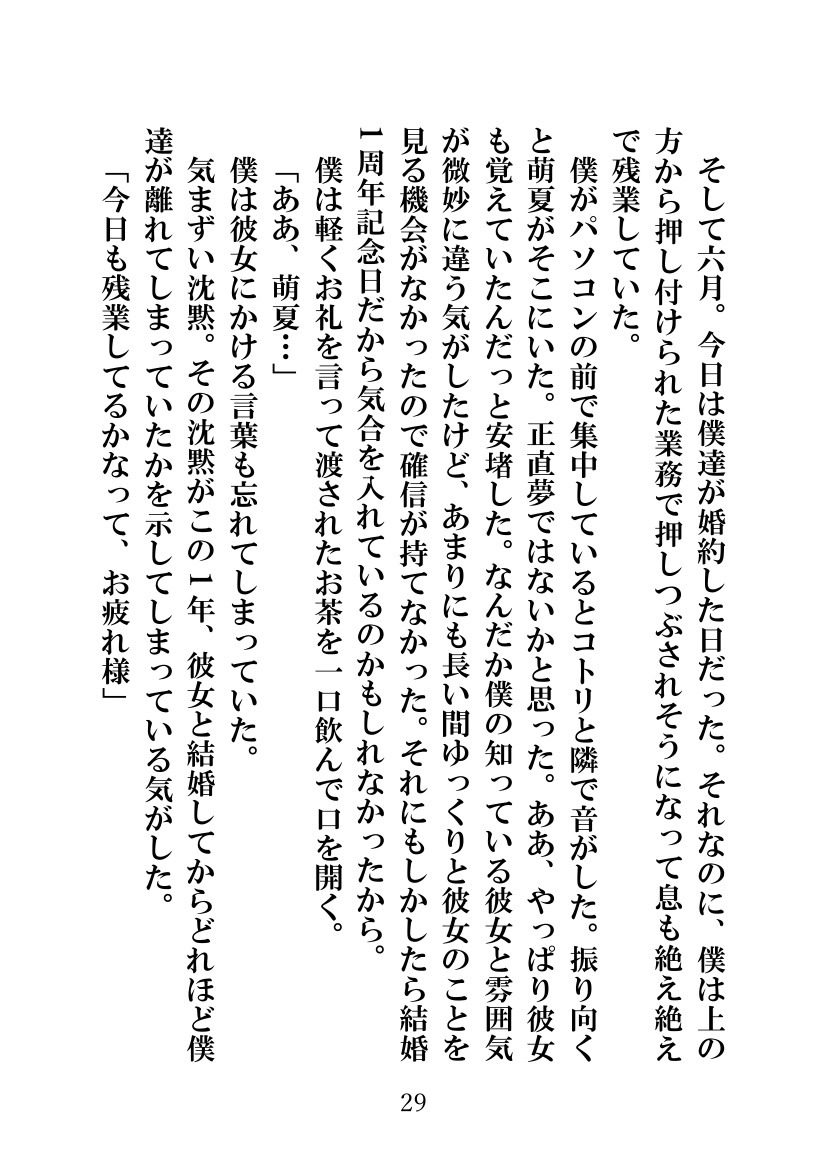 そして六月。今日は僕達が婚約した日だった。それなのに、僕は上の
方から押し付けられた業務で押しつぶされそうになって息も絶え絶え
で残業していた。
僕がパソコンの前で集中しているとコトリと隣で音がした。振り向く
と萌夏がそこにいた。正直夢ではないかと思った。ああ、やっぱり彼女
も覚えていたんだっと安堵した。なんだか僕の知っている彼女と雰囲気
が微妙に違う気がしたけど、あまりにも長い間ゆっくりと彼女のことを
見る機会がなかったので確信が持てなかった。それにもしかしたら結婚
1周年記念日だから気合を入れているのかもしれなかったから。
僕は軽くお礼を言って渡されたお茶を一口飲んで口を開く。
「ああ、萌夏…」
僕は彼女にかける言葉も忘れてしまっていた。
気まずい沈黙。その沈黙がこの1年、彼女と結婚してからどれほど僕
達が離れてしまっていたかを示してしまっている気がした。
「今日も残業してるかなって、お疲れ様」
29